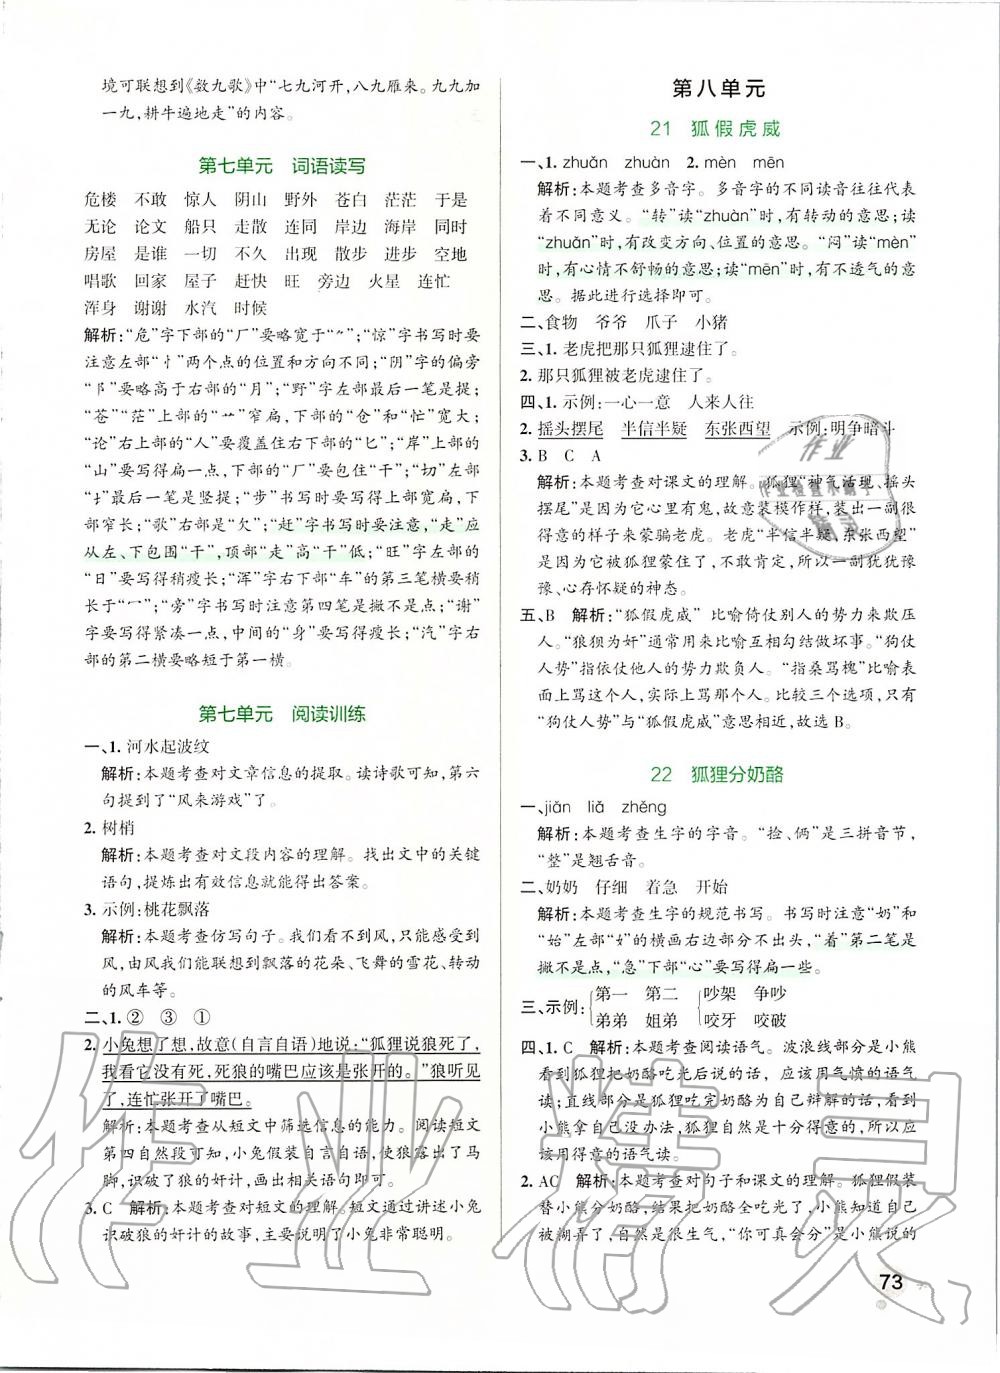 境可联想到《数九歌》中“七九河开,八九雁来。九九加
一九,耕牛遍地走”的内容。
第七单元 词语读写
危楼 不敢 惊人 阴山 野外 苍白 茫茫 于是
无论 论文 船只 走散 连同 岸边 海岸 同时
房屋 是谁 一切 不久 出现 散步 进步 空地
唱歌 回家 屋子 赶快 旺 旁边 火星 连忙
浑身 谢谢 水汽 时候
解析:“危”字下部的“厂”要略宽于“⺈”;“惊”字书写时要
注意左部“忄”两个点的位置和方向不同;“阴”字的偏旁
“阝”要略高于右部的“月”;“野”字左部最后一笔是提;
“苍”“茫”上部的“艹”窄扁,下部的“仓”和“忙”宽大;
“论”右上部的“人”要覆盖住右下部的“匕”;“岸”上部的
“山”要写得扁一点,下部的“厂”要包住“干”;“切”左部
“𠀁”最后一笔是竖提;“步”书写时得上部宽扁,下
部窄长;“歌”右部是“欠”;“赶”字书写时要注意,“走”应
从左、下包围“干”,顶部“走”高“干”低;“旺”字左部的
“日”要写得稍瘦长;“浑”字右下部“车”的第三笔横要稍
长于“冖”;“旁”字书写时注意第四笔是撇不是点;“谢”
字要写得紧凑一点,中间的“身”要写得瘦长;“汽”字右
部的第二横要略短于第一横。
第七单元 阅读训练
一、1. 河水起波纹
解析:本题考查对文章信息的提取。读诗歌可知,第六
句提到了“风来游戏”了。
2. 树梢
解析:本题考查对文段内容的理解。找出文中的关键
语句,提炼出有效信息就能得出答案。
3. 示例:桃花飘落
解析:本题考查仿写句子。我们看不到风,只能感受到
风,由风我们能联想到飘落的花朵、飞舞的雪花、转动
的风车等。
二、1. ② ③ ①
2. 小兔想了想,故意(自言自语)地说:“狐狸说狼死了,
我看它没有死,死狼的嘴巴应该是张开的。”狼听见
了,连忙张开了嘴巴。
解析:本题考查从短文中筛选信息的能力。阅读短文
第四自然段可知,小兔假装自言自语,使狼露出了马
脚,识破了狼的奸计,画出相关语句即可。
3. C 解析:本题考查对短文的理解。短文通过讲述小兔
识破狼的奸计的故事,主要说明了小兔非常聪明。
第八单元
21 狐假虎威
一、1. zhuǎn zhuàn 2. mèn mēn
解析:本题考查多音字。多音字的不同读音往往代表
着不同意义。“转”读“zhuàn”时,有转动的意思;读
“zhuǎn”时,有改变方向、位置的意思。“闷”读“mèn”
时,有心情不舒畅的意思;读“mēn”时,有不透气的意
思。据此进行选择即可。
二、食物 爷爷 爪子 小猪
三、1. 老虎把那只狐狸逮住了。
2. 那只狐狸被老虎逮住了。
四、1. 示例:一心一意 人来人往
2. 摇头摆尾 半信半疑 东张西望 示例:明争暗斗
3. B C A
解析:本题考查对课文的理解。狐狸“神气活现、摇头
摆尾”是因为它心里有鬼,故意装模作样,装出一副很
得意的样子来蒙骗老虎。老虎“半信半疑,东张西望”
是因为它被狐狸蒙住了,不敢肯定,所以一副犹犹豫
豫、心存怀疑的神态。
五、B 解析:“狐假虎威” 比喻倚仗别人的势力来欺压
人。“狼狈为奸”通常用来比喻互相勾结做坏事。“狗仗
人势”指依仗他人的势力欺负人。“指桑骂槐”比喻表
面上骂这个人,实际上骂那个人。比较三个选项,只有
“狗仗人势”与“狐假虎威”意思相近,故选 B。
22 狐狸分奶酪
一、jiǎn liǎ zhěng
解析:本题考查生字的字音。“捡、俩”是三拼音节,
“整”是翘舌音。
二、奶奶 仔细 着急 开始
解析:本题考查生字的规范书写。书写时注意“奶”和
“始”左部“女”的横画右边部分不出头,“着”第二笔是
撇不是点,“急”下部“心”要写得扁一些。
三、示例: 第一 第二 吵架 争吵
弟弟 姐弟 咬牙 咬破
四、1. C 解析:本题考查阅读语气。波浪线部分是小熊
看到狐狸把奶酪吃光后说的话, 应该用气愤的语气
读;直线部分是狐狸吃完奶酪为自己辩解的话,看到
小熊拿自己没办法,狐狸自然是十分得意的,所以应
该用得意的语气读。
2. AC 解析:本题考查对句子和课文的理解。狐狸假装
替小熊分奶酪,结果把奶酪全吃光了,小熊知道自己
被糊弄了,自然是很生气,“你可真会分”是小熊说的
73
作业精灵
作业
作业检查小助手
精灵